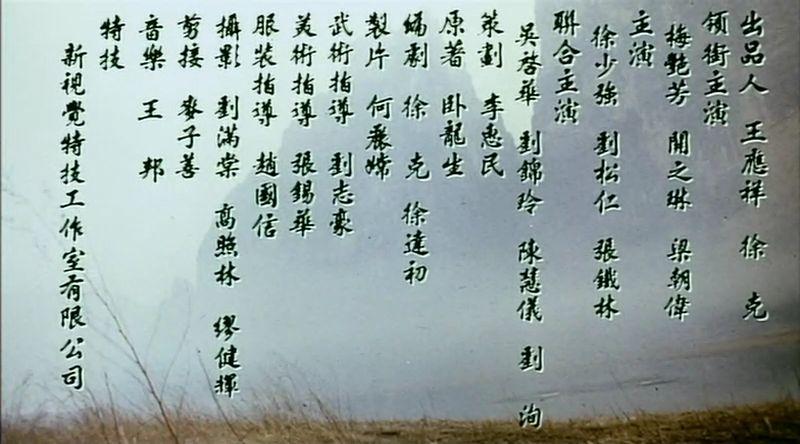 出品人 王應祥 徐克
領銜主演
梅艷芳 關之琳 梁朝偉
主演
徐少強 劉松仁 張鐵林
聯合主演
吳啓華 劉錦玲 陳慧儀 劉洵
策劃 李惠民
原著 卧龍生
編劇 徐克 徐達初
製片 何麗嫦
武術指導 劉志豪
美術指導 張錫華
服裝指導 趙國信
攝影 劉滿棠 高照林 繆健輝
剪接 麥子善
音樂 王邦
特技
新視覺特技工作室有限公司